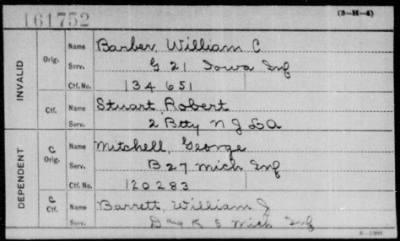 161752
(3-H-4)
INVALID
Orig. Name Barber, William C
Serv. G 21 Iowa Inf
Ctf. No. 134 651
Ctf. Name Stuart, Robert
Serv. 2 Btty N J L A
DEPENDENT
C Orig. Name Mitchell, George
Serv. B 27 Mich Inf
Ctf. No. 120283
C Ctf. Name Barrett, William J
Serv. K 5 Mich Inf